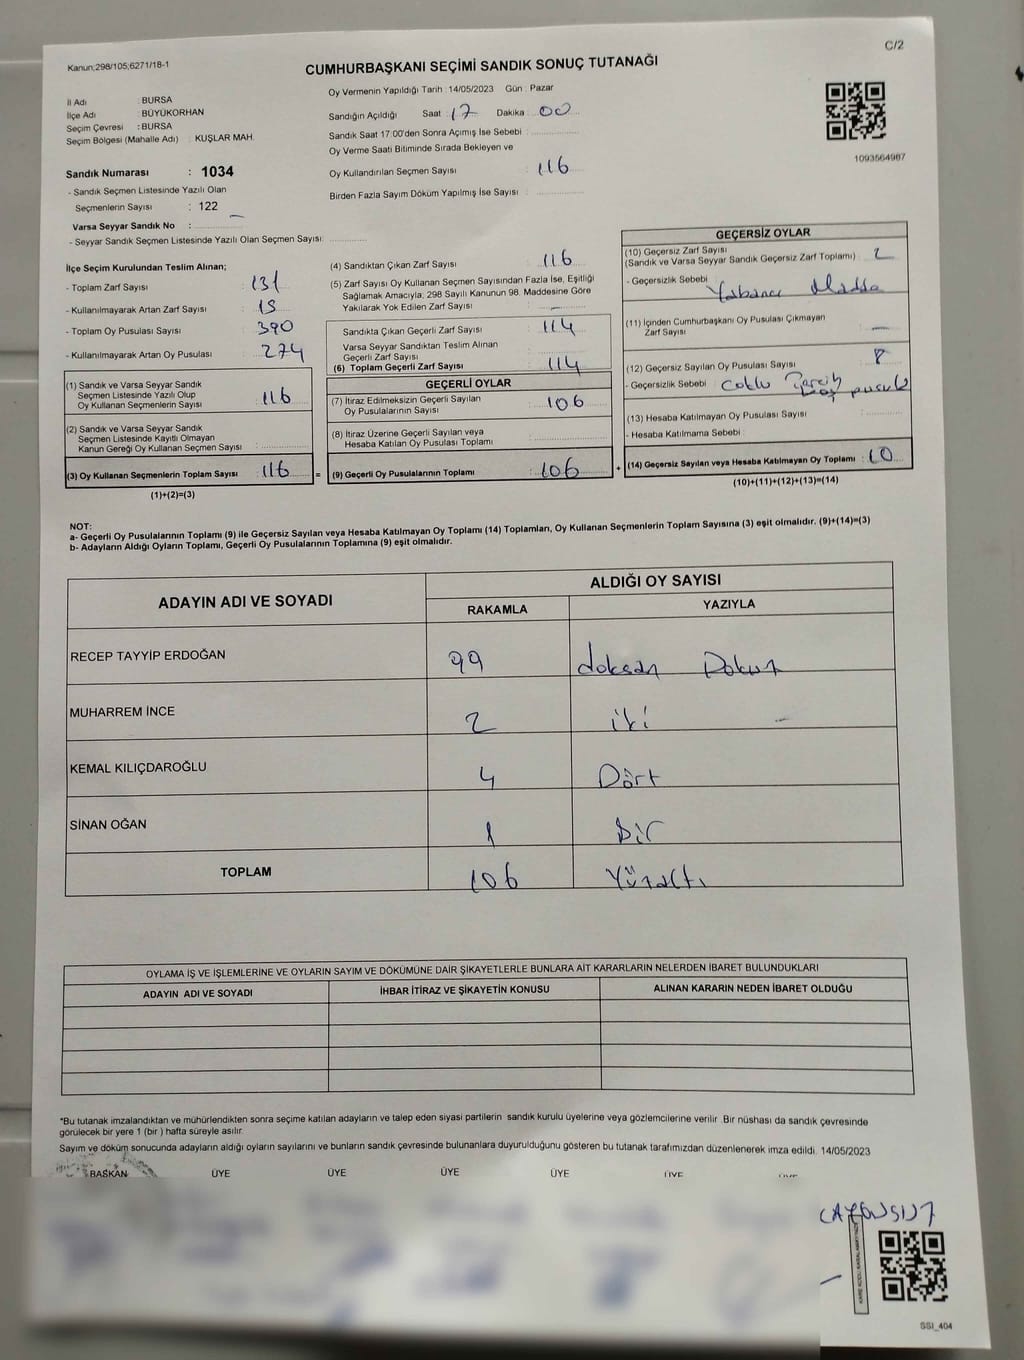 C/2
Kanun;298/105;6271/18-1
CUMHURBAŞKANI SEÇİMİ SANDIK SONUÇ TUTANAĞI
İl Adı : BURSA
İlçe Adı : BÜYÜKORHAN
Seçim Çevresi : BURSA
Seçim Bölgesi (Mahalle Adı) : KUŞLAR MAH.
Sandık Numarası : 1034
- Sandık Seçmen Listesinde Yazılı Olan
Seçmenlerin Sayısı : 122
Varsa Seyyar Sandık No : –
- Seyyar Sandık Seçmen Listesinde Yazılı Olan Seçmen Sayısı:
Oy Vermenin Yapıldığı Tarih : 14/05/2023 Gün : Pazar
Sandığın Açıldığı Saat 17 Dakika 00
Sandık Saat 17:00'den Sonra Açımış İse Sebebi :
Oy Verme Saati Bitiminde Sırada Bekleyen ve
Oy Kullandırılan Seçmen Sayısı : 116
Birden Fazla Sayım Döküm Yapılmış İse Sayısı :
1093564987
İlçe Seçim Kurulundan Teslim Alınan;
- Toplam Zarf Sayısı : 131
- Kullanılmayarak Artan Zarf Sayısı : 15
- Toplam Oy Pusulası Sayısı : 390
- Kullanılmayarak Artan Oy Pusulası : 274
(1) Sandık ve Varsa Seyyar Sandık
Seçmen Listesinde Yazılı Olup
Oy Kullanan Seçmenlerin Sayısı : 116
(2) Sandık ve Varsa Seyyar Sandık
Seçmen Listesinde Kayıtlı Olmayan
Kanun Gereği Oy Kullanan Seçmen Sayısı :
(3) Oy Kullanan Seçmenlerin Toplam Sayısı : 116 =
(1)+(2)=(3)
(4) Sandıktan Çıkan Zarf Sayısı : 116
(5) Zarf Sayısı Oy Kullanan Seçmen Sayısından Fazla İse, Eşitliği
Sağlamak Amacıyla; 298 Sayılı Kanunun 98. Maddesine Göre
Yakılarak Yok Edilen Zarf Sayısı : –
Sandıkta Çıkan Geçerli Zarf Sayısı : 114
Varsa Seyyar Sandıktan Teslim Alınan
Geçerli Zarf Sayısı :
(6) Toplam Geçerli Zarf Sayısı : 114
GEÇERLİ OYLAR
(7) İtiraz Edilmeksizin Geçerli Sayılan
Oy Pusulalarının Sayısı : 106
(8) İtiraz Üzerine Geçerli Sayılan veya
Hesaba Katılan Oy Pusulası Toplamı :
(9) Geçerli Oy Pusulalarının Toplamı : 106 +
GEÇERSİZ OYLAR
(10) Geçersiz Zarf Sayısı
(Sandık ve Varsa Seyyar Sandık Geçersiz Zarf Toplamı) : 2
- Geçersizlik Sebebi : Yabancı Madda
(11) İçinden Cumhurbaşkanı Oy Pusulası Çıkmayan
Zarf Sayısı : –
(12) Geçersiz Sayılan Oy Pusulası Sayısı : 8
- Geçersizlik Sebebi : Coklu Tercih
Boş pusula
(13) Hesaba Katılmayan Oy Pusulası Sayısı :
- Hesaba Katılmama Sebebi :
(14) Geçersiz Sayılan veya Hesaba Katılmayan Oy Toplamı : 10
(10)+(11)+(12)+(13)=(14)
NOT:
a- Geçerli Oy Pusulalarının Toplamı (9) ile Geçersiz Sayılan veya Hesaba Katılmayan Oy Toplamı (14) Toplamları, Oy Kullanan Seçmenlerin Toplam Sayısına (3) eşit olmalıdır. (9)+(14)=(3)
b- Adayların Aldığı Oyların Toplamı, Geçerli Oy Pusulalarının Toplamına (9) eşit olmalıdır.
ADAYIN ADI VE SOYADI
ALDIĞI OY SAYISI
RAKAMLA YAZIYLA
RECEP TAYYİP ERDOĞAN 99 doksan Dokuz
MUHARREM İNCE 2 iki
KEMAL KILIÇDAROĞLU 4 Dört
SİNAN OĞAN 1 Bir
TOPLAM 106 Yüzaltı
OYLAMA İŞ VE İŞLEMLERİNE VE OYLARIN SAYIM VE DÖKÜMÜNE DAİR ŞİKAYETLERLE BUNLARA AİT KARARLARIN NELERDEN İBARET BULUNDUKLARI
ADAYIN ADI VE SOYADI İHBAR İTİRAZ VE ŞİKAYETİN KONUSU ALINAN KARARIN NEDEN İBARET OLDUĞU
*Bu tutanak imzalandıktan ve mühürlendikten sonra seçime katılan adayların ve talep eden siyasi partilerin sandık kurulu üyelerine veya gözlemcilerine verilir. Bir nüshası da sandık çevresinde
görülecek bir yere 1 (bir ) hafta süreyle asılır.
Sayım ve döküm sonucunda adayların aldığı oyların sayılarını ve bunların sandık çevresinde bulunanlara duyurulduğunu gösteren bu tutanak tarafımızdan düzenlenerek imza edildi. 14/05/2023
BAŞKAN ÜYE ÜYE ÜYE ÜYE ÜYE ÜYE
SSI_404